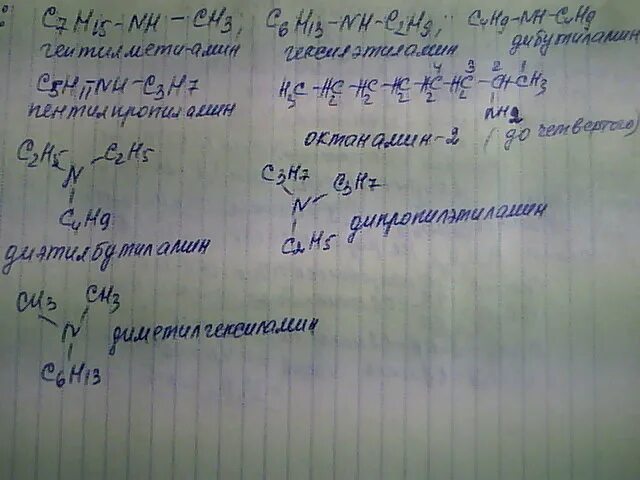 C7H15-NH-CH3; C6H13-NH-C2H9; C4H9-NH-C4H9
гептилметиламин гексилэтиламин дибутиламин
C5H11NH-C3H7 H3C-H2C-H2C-H2C-H2C-H2C-CH-CH3
4 3 2 1
пентилпропиламин NH2
октанамин-2 (до четвертого)
C2H5 C2H5
N
C4H9
диэтилбутиламин
C3H7 C3H7
N
C2H5
дипропилэтиламин
CH3 CH3
N
C6H13
диметилгексиламин